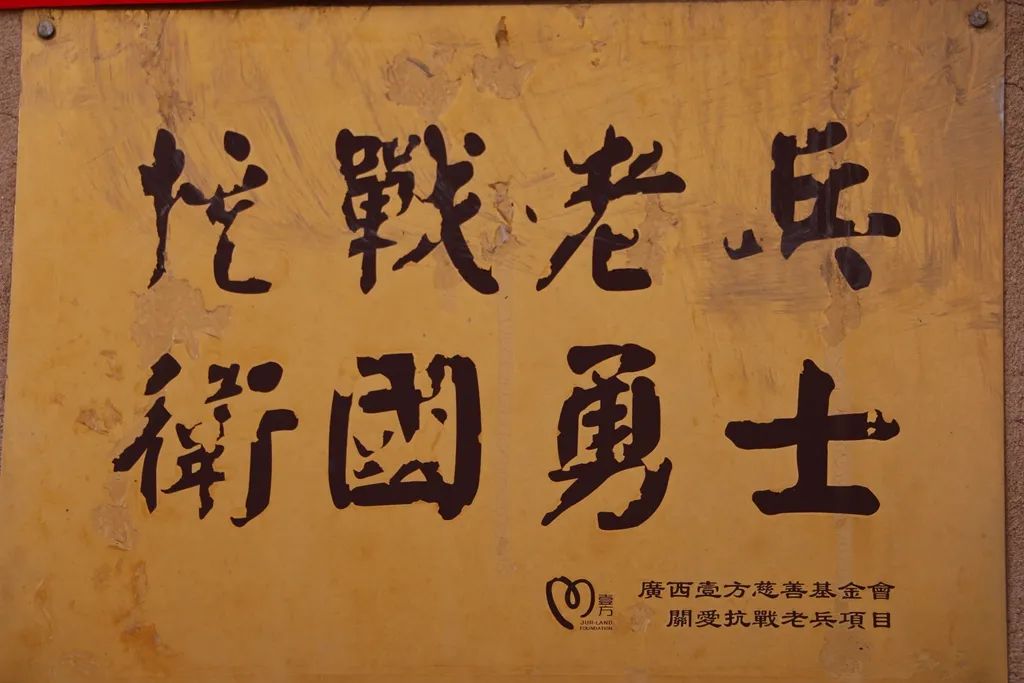 抗戰老兵
衛國勇士
壹方
JUN-LAND
FOUNDATION
廣西壹方慈善基金會
關愛抗戰老兵項目